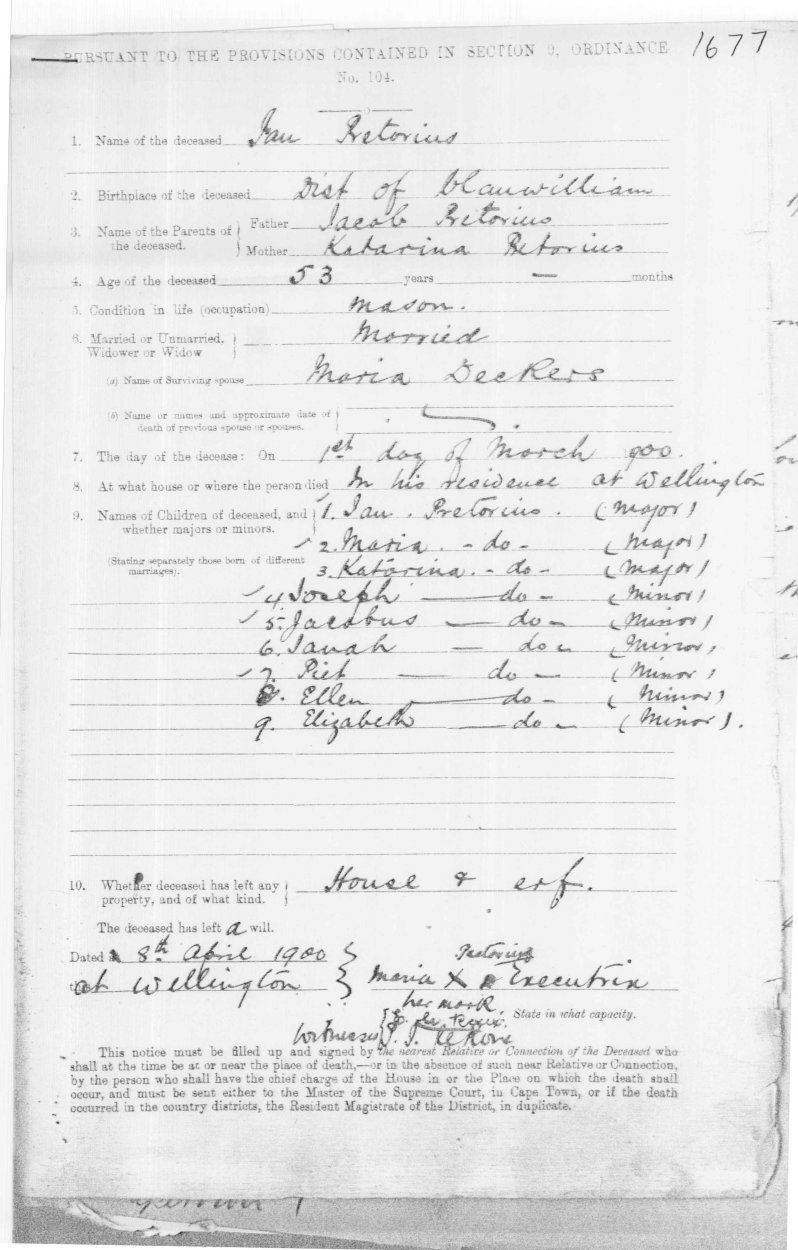 PURSUANT TO THE PROVISIONS CONTAINED IN SECTION 9, ORDINANCE
No. 104.
1677
1. Name of the deceased Jan Pretorius
2. Birthplace of the deceased Dist of Clanwilliam
3. Name of the Parents of the deceased. Father Jacob Pretorius
Mother Katarina Pretorius
4. Age of the deceased 53 years — months
5. Condition in life (occupation) Mason.
6. Married or Unmarried, Widower or Widow Married
(a) Name of Surviving spouse Maria Deckers
(b) Name or names and approximate date of
death of previous spouse or spouses.
7. The day of the decease: On 1st day of March 900.
8. At what house or where the person died In his residence at Wellington
9. Names of Children of deceased, and whether majors or minors. 1. Jan. Pretorius. (Major)
2. Maria. - do - (Major)
(Stating separately those born of different marriages). 3. Katarina. - do - (Major)
4 Joseph — do - (Minor)
5. Jacobus — do - (Minor)
6. Janah — do - (Minor)
7. Piet — do - (Minor)
8. Ellen — do - (Minor)
9. Elizabeth — do - (Minor).
10. Whether deceased has left any property, and of what kind. House & erf.
The deceased has left a will.
Dated 8th April 1900
at Wellington
Pretorius
Maria X Executrix
her mark
State in what capacity.
Witnesses
This notice must be filled up and signed by the nearest Relative or Connection of the Deceased who
shall at the time be at or near the place of death,—or in the absence of such near Relative or Connection,
by the person who shall have the chief charge of the House in or the Place on which the death shall
occur, and must be sent either to the Master of the Supreme Court, in Cape Town, or if the death
occurred in the country districts, the Resident Magistrate of the District, in duplicate.